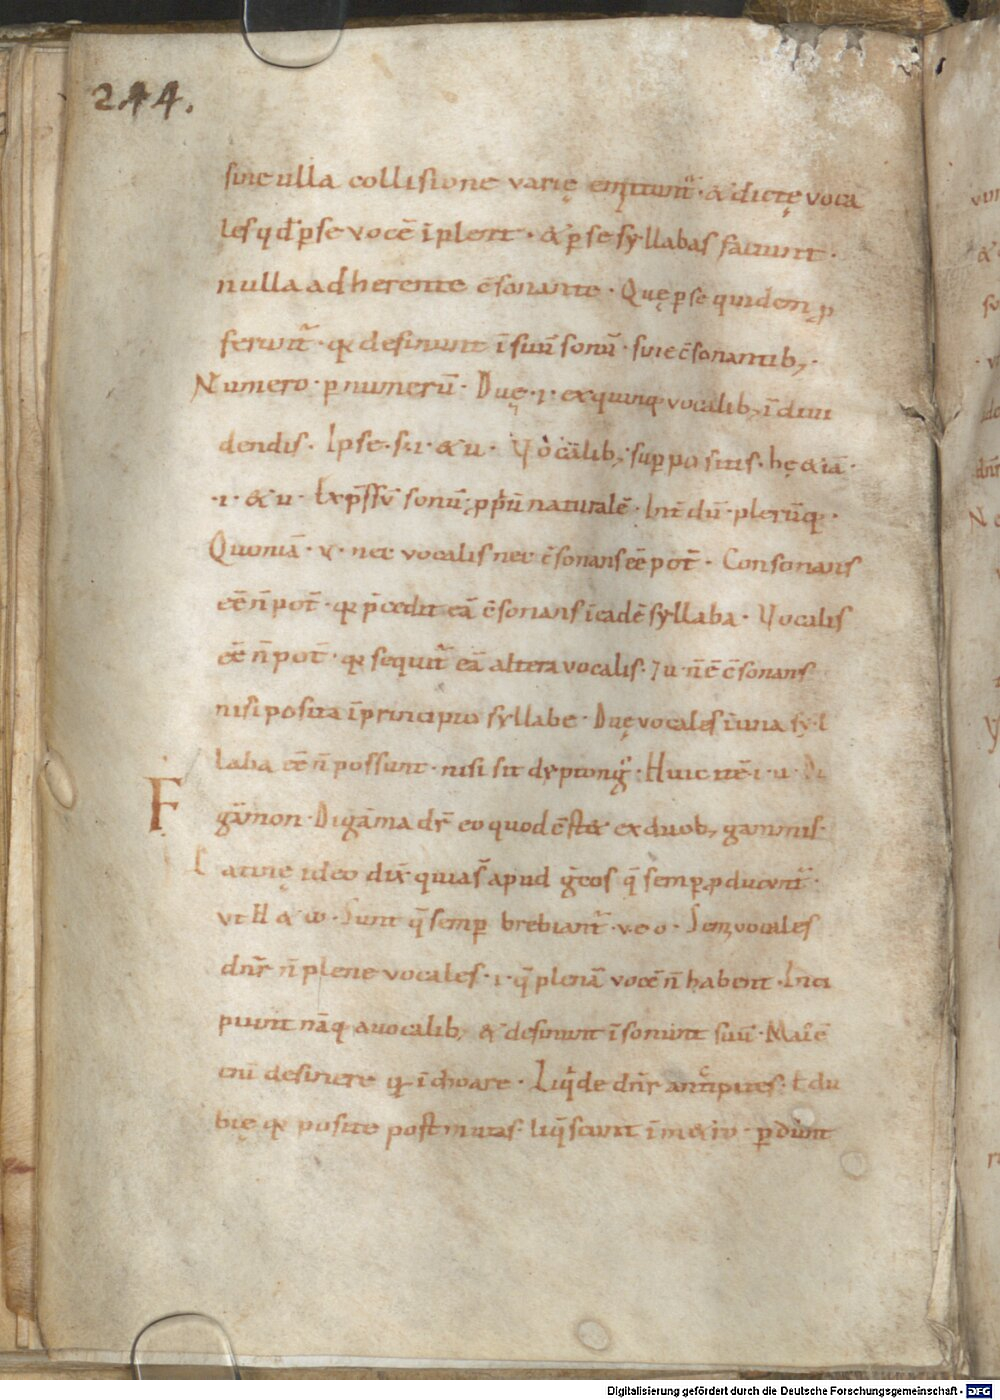 244.
sine ulla collisione varię emittunt᷑ · & dictę voca
les qđ p̱ se vocē īplent · & p̱ se syllabas faciunt ·
nulla adherente c̄sonante · Quę p̱ se quidem p̱
ferunt᷑ · qꝫ desinunt ī suū sonū · sine c̄sonantibꝫ ·
Numero · p̱ numerū · Duę · i · ex quinqꝫ vocalibꝫ ī diui
dendis · Ipse · s · i · & u · Vocālibꝫ sup̱positis · hę & iā ·
· i · & u · Exp̄ssū sonū p̱p̄ū naturalē · Int̄dū · plerūqꝫ ·
Quoniā · v · nec vocalis nec c̄sonans eē pot̄ · Consonans
eē n̄ pot̄ · qꝫ p̄cedit eā c̄sonans ī eadē syllaba · Vocalis
eē n̄ pot̄ · qꝫ sequit᷑ eā altera vocalis · ⁊ u · n̄ ē c̄sonans
nisi posita ī principio syllabe · Duę vocales ī una syl
laba eē n̄ possunt · nisi sit dyptongꝰ · Huic itē · i · u · Di
F
gāmon · Digāma dr̄ eo quod c̄stet ex duobꝫ gammis ·
Latinę ideo dix̄ quia s̄ apud grecos q̄ semp̱ p̱ducunt᷑ ·
vt H & ω · Sunt q̄ semp̱ brebiant᷑ · v · e o · Semivocales
dn̄r n̄ plene vocales · i · q̄ plenā vocē n̄ habent · Inci
piunt nāqꝫ a vocalibꝫ & desinunt ī sonunt suū · Mai᷑ ē
enī desinere qꝫ īchoare · Liq̄de dn̄r ancipites · t du
bię qꝫ posite post mutas · liq̄scunt ī m&ro · p̱dunt
Digitalisierung gefördert durch die Deutsche Forschungsgemeinschaft - DFG